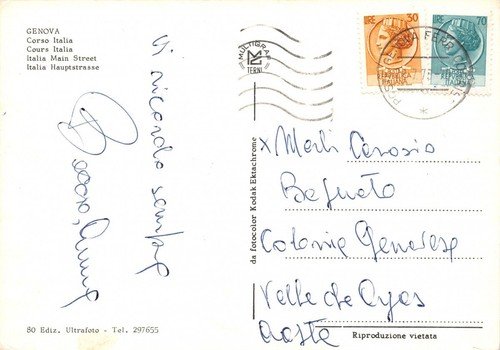 GENOVA
Corso Italia
Cours Italia
Italia Main Street
Italia Hauptstrasse
Vi ricordo sempre
MULTIGRAF
TERNI
LIRE 30
LIRE 70
REPUBBLICA
ITALIANA
REPUBBLICA
ITALIANA
da fotocolor Kodak Ektachrome
x Merli Carosio
Colonia Genovese
Valle de Ayas
Aosta
80 Ediz. Ultrafoto - Tel. 297655
Riproduzione vietata